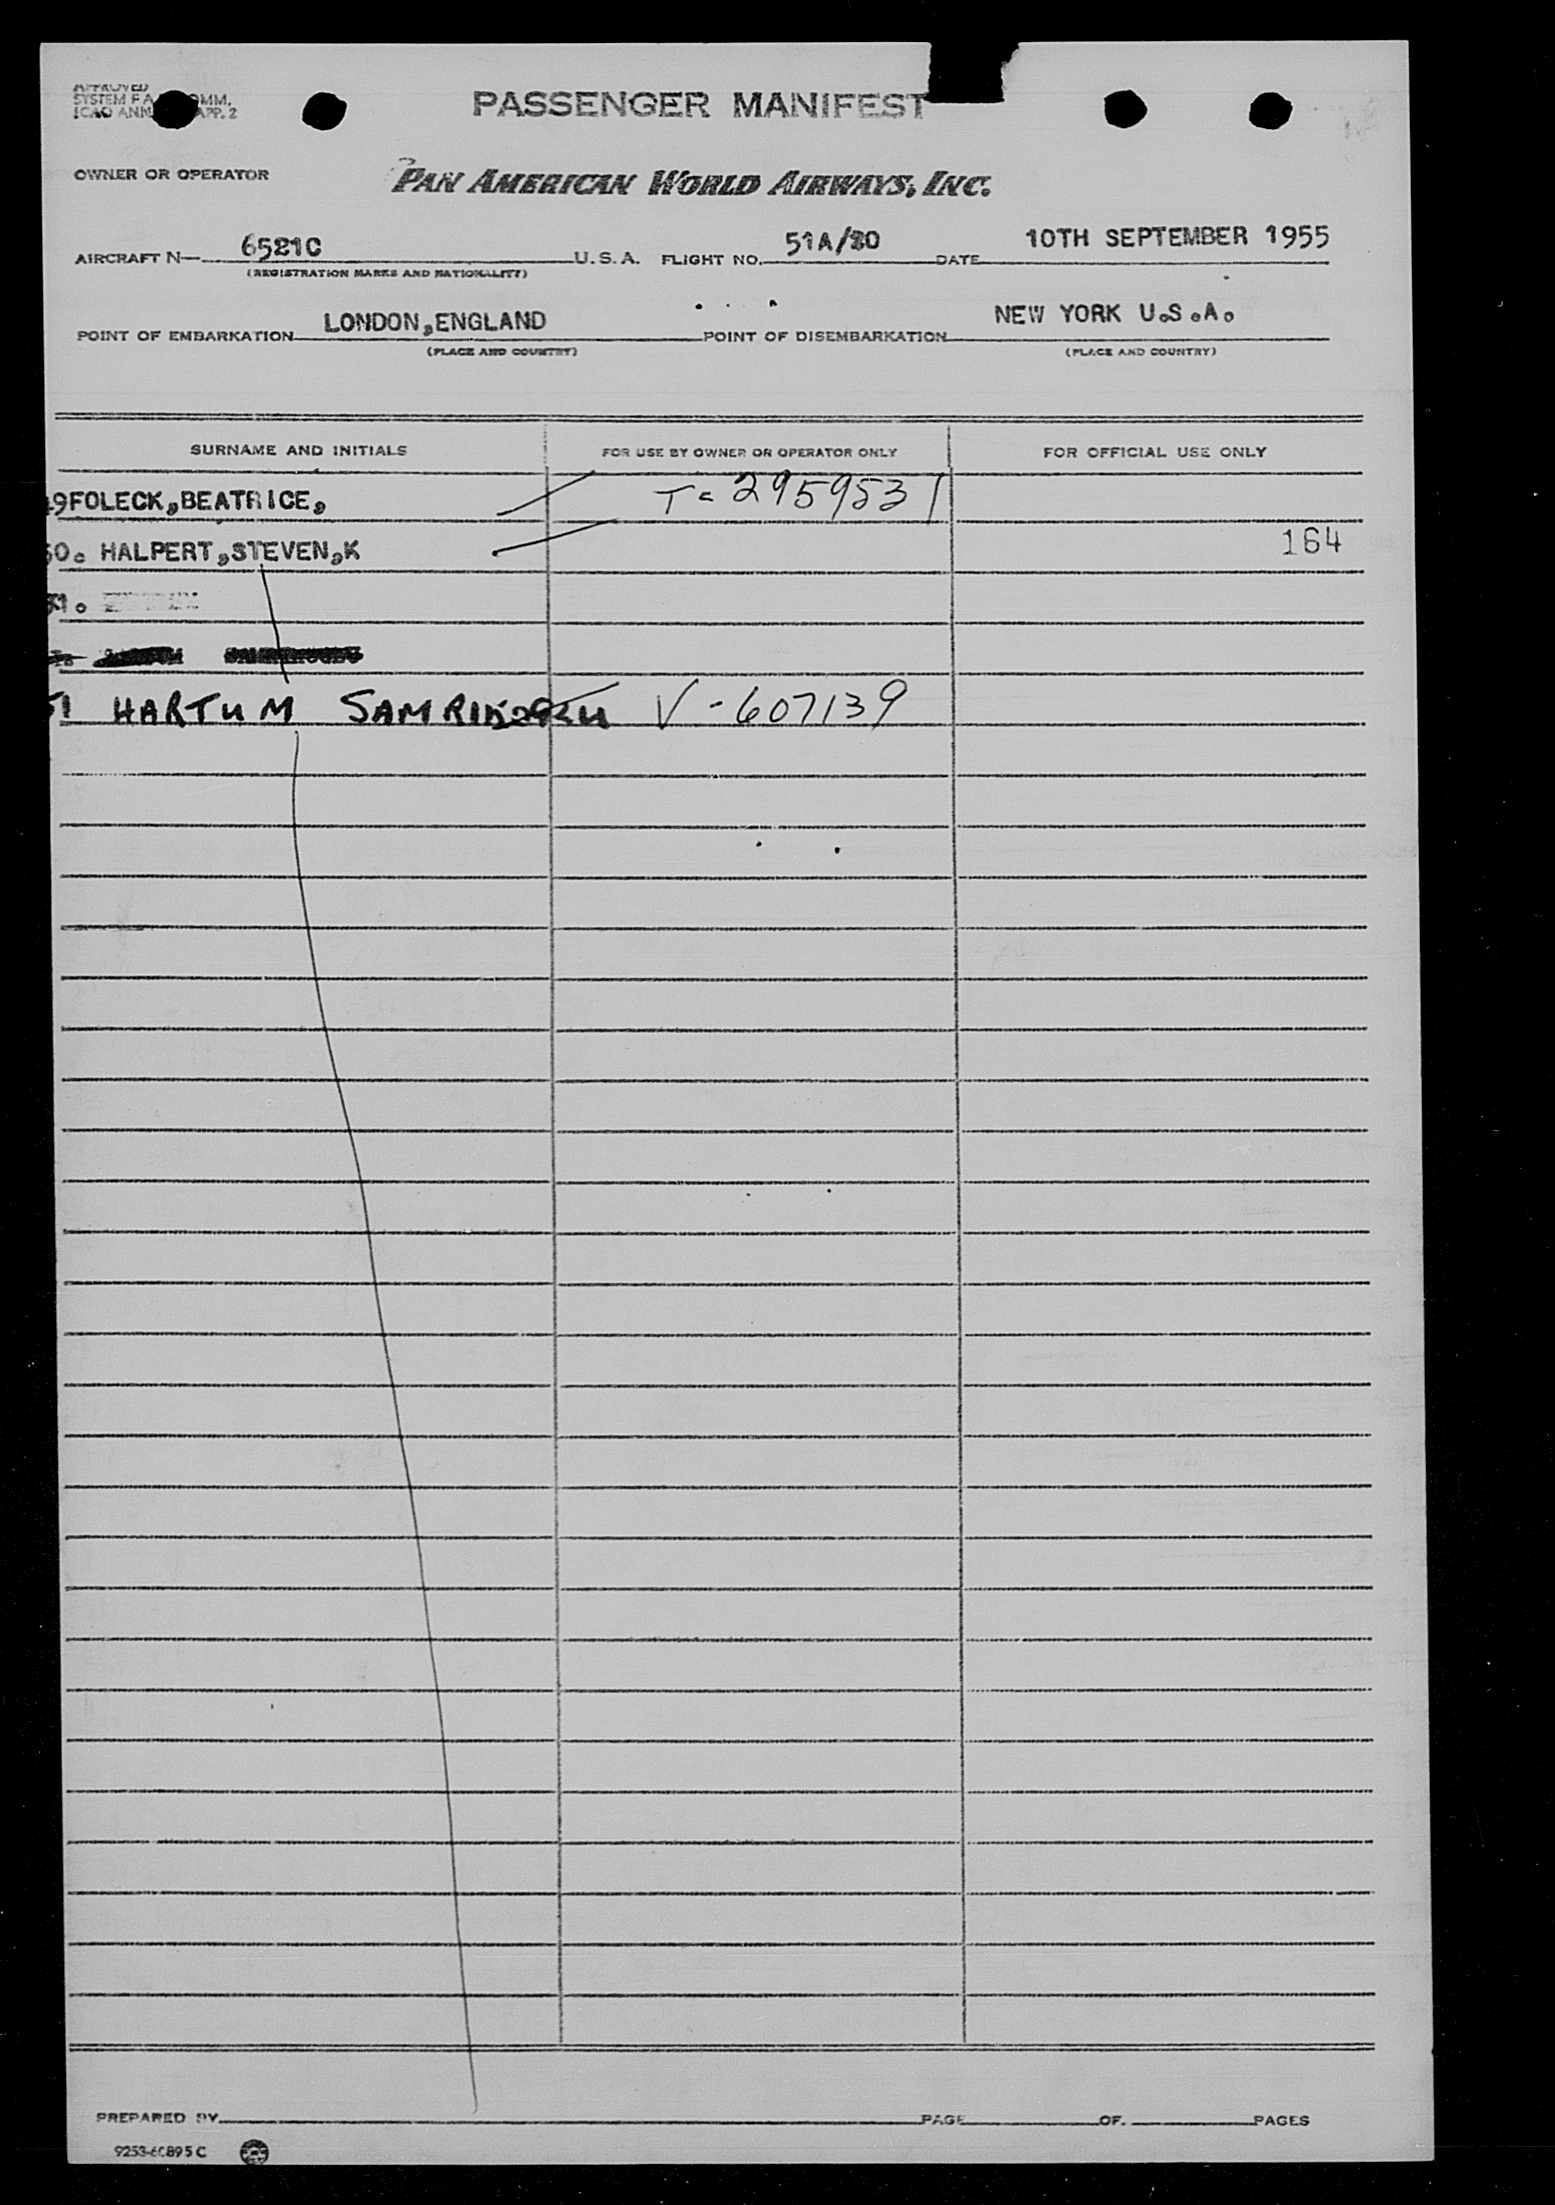 APPROVED
SYSTEM F A COMM.
ICAO ANN APP. 2
PASSENGER MANIFEST
OWNER OR OPERATOR
PAN AMERICAN WORLD AIRWAYS, INC.
AIRCRAFT N— 6521C U.S.A. FLIGHT NO. 51A/80 DATE 10TH SEPTEMBER 1955
(REGISTRATION MARKS AND NATIONALITY)
POINT OF EMBARKATION LONDON,ENGLAND POINT OF DISEMBARKATION NEW YORK U.S.A.
(PLACE AND COUNTRY) (PLACE AND COUNTRY)
SURNAME AND INITIALS FOR USE BY OWNER OR OPERATOR ONLY FOR OFFICIAL USE ONLY
49FOLECK,BEATRICE, T- 2959531
50. HALPERT,STEVEN,K 164
51.
51 HARTUM V-607139
PREPARED BY PAGE OF PAGES
9253-60895 C